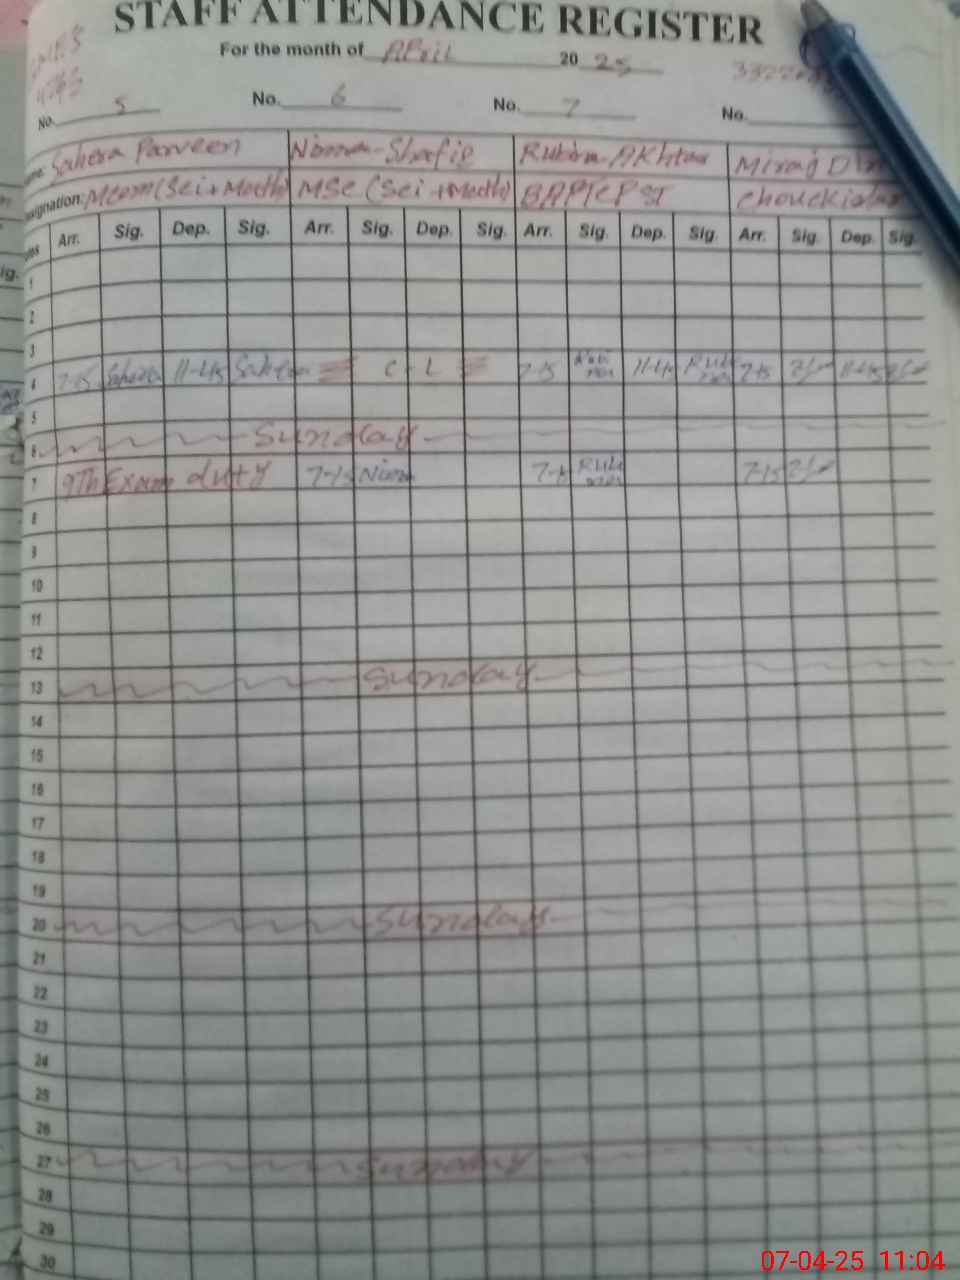 STAFF ATTENDANCE REGISTER
For the month of April 20 25
No. 5 No. 6 No. 7 No.
Sahera Parveen Nimra-Shafie Rubina Akhtar Miraj Din
signation: (Sci+Math) MSC (Sci+Math) PST Choukidar
Arr. Sig. Dep. Sig. Arr. Sig. Dep. Sig. Arr. Sig. Dep. Sig. Arr. Sig. Dep. Sig.
1
2
3
4 7-15 Sahera 11-45 Sahera C-L 7-15 11-45 7-15 11-45
5
6 Sunday
7 9Th Exam duty 7-15 Nimra 7-15 7-15
8
9
10
11
12
13 Sunday
14
15
16
17
18
19
20 Sunday
21
22
23
24
25
26
27 Sunday
28
29
30
07-04-25 11:04